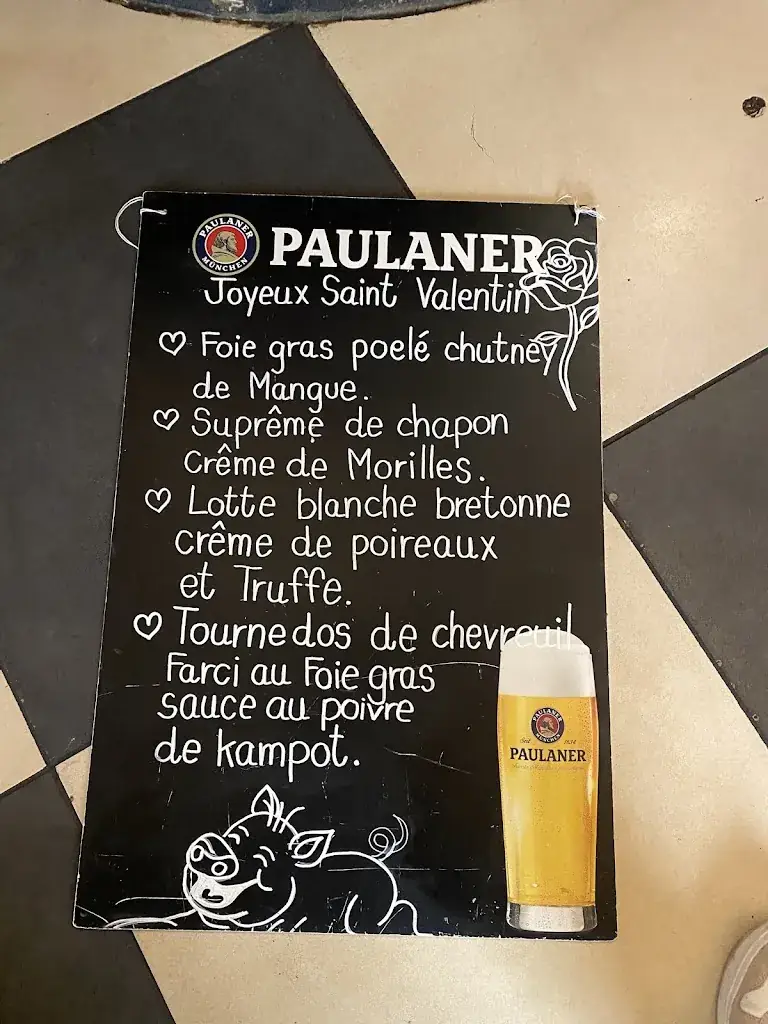 PAULANER
MÜNCHEN
PAULANER
Joyeux Saint Valentin
Foie gras poelé chutney
de Mangue.
Suprême de chapon
crême de Morilles.
Lotte blanche bretonne
crême de poireaux
et Truffe.
Tournedos de chevreuil
Farci au Foie gras
sauce au poivre
de kampot.
PAULANER
MÜNCHEN
Seit 1634
PAULANER